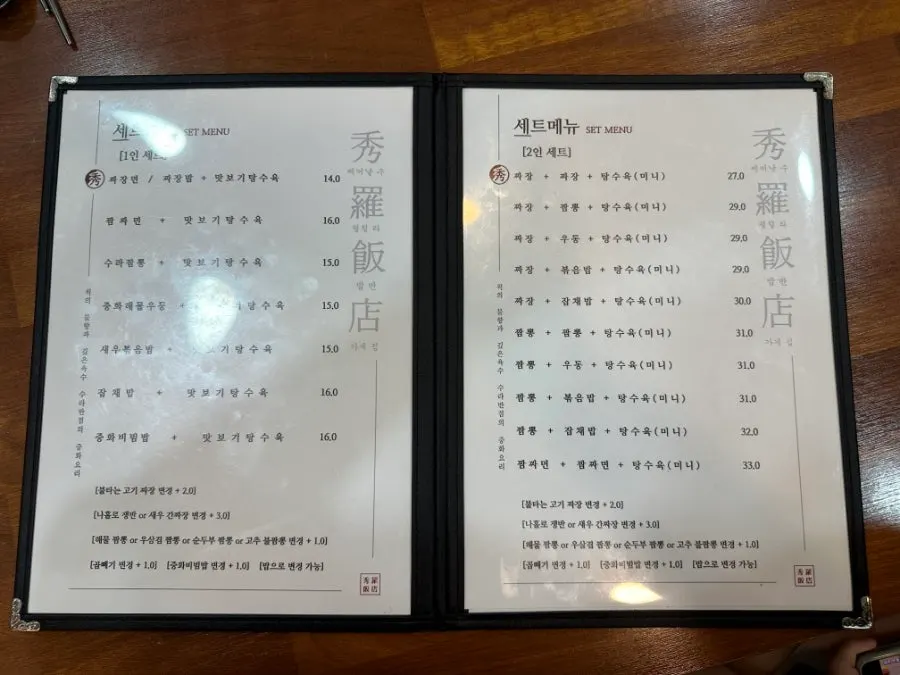 세트 SET MENU
[1인 세트]
秀 짜장면 / 짜장밥 + 맛보기탕수육 14.0
짬짜면 + 맛보기탕수육 16.0
수라짬뽕 + 맛보기탕수육 15.0
중화해물우동 + 탕수육 15.0
새우볶음밥 + 맛보기탕수육 15.0
잡채밥 + 맛보기탕수육 16.0
중화비빔밥 + 맛보기탕수육 16.0
[불타는 고기 짜장 변경 + 2.0]
[나홀로 쟁반 or 새우 간짜장 변경 + 3.0]
[해물 짬뽕 or 우삼겹 짬뽕 or 순두부 짬뽕 or 고추 불짬뽕 변경 + 1.0]
[곱빼기 변경 + 1.0] [중화비빔밥 변경 + 1.0] [밥으로 변경 가능]
깊은육수 수라반점의 중화요리
秀
빼어날 수
羅
펼칠 라
飯
밥 반
店
가게 점
秀羅
飯店
세트메뉴 SET MENU
[2인 세트]
秀 짜장 + 짜장 + 탕수육(미니) 27.0
짜장 + 짬뽕 + 탕수육(미니) 29.0
짜장 + 우동 + 탕수육(미니) 29.0
짜장 + 볶음밥 + 탕수육(미니) 29.0
짜장 + 잡채밥 + 탕수육(미니) 30.0
짬뽕 + 짬뽕 + 탕수육(미니) 31.0
짬뽕 + 우동 + 탕수육(미니) 31.0
짬뽕 + 볶음밥 + 탕수육(미니) 31.0
짬뽕 + 잡채밥 + 탕수육(미니) 32.0
짬짜면 + 짬짜면 + 탕수육(미니) 33.0
[불타는 고기 짜장 변경 + 2.0]
[나홀로 쟁반 or 새우 간짜장 변경 + 3.0]
[해물 짬뽕 or 우삼겹 짬뽕 or 순두부 짬뽕 or 고추 불짬뽕 변경 + 1.0]
[곱빼기 변경 + 1.0] [중화비빔밥 변경 + 1.0] [밥으로 변경 가능]
깊은육수 수라반점의 중화요리
秀
빼어날 수
羅
펼칠 라
飯
밥 반
店
가게 점
秀羅
飯店